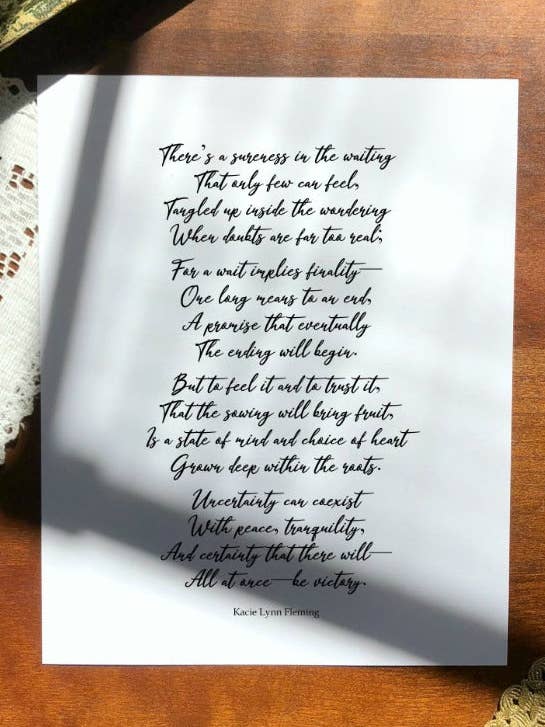 There's a sureness in the waiting
That only few can feel,
Tangled up inside the wondering
When doubts are far too real;
For a wait implies finality—
One long means to an end,
A promise that eventually
The ending will begin.
But to feel it and to trust it,
That the sowing will bring fruit,
Is a state of mind and choice of heart
Grown deep within the roots.
Uncertainty can coexist
With peace, tranquility,
And certainty that there will—
All at once—be victory.
Kacie Lynn Fleming